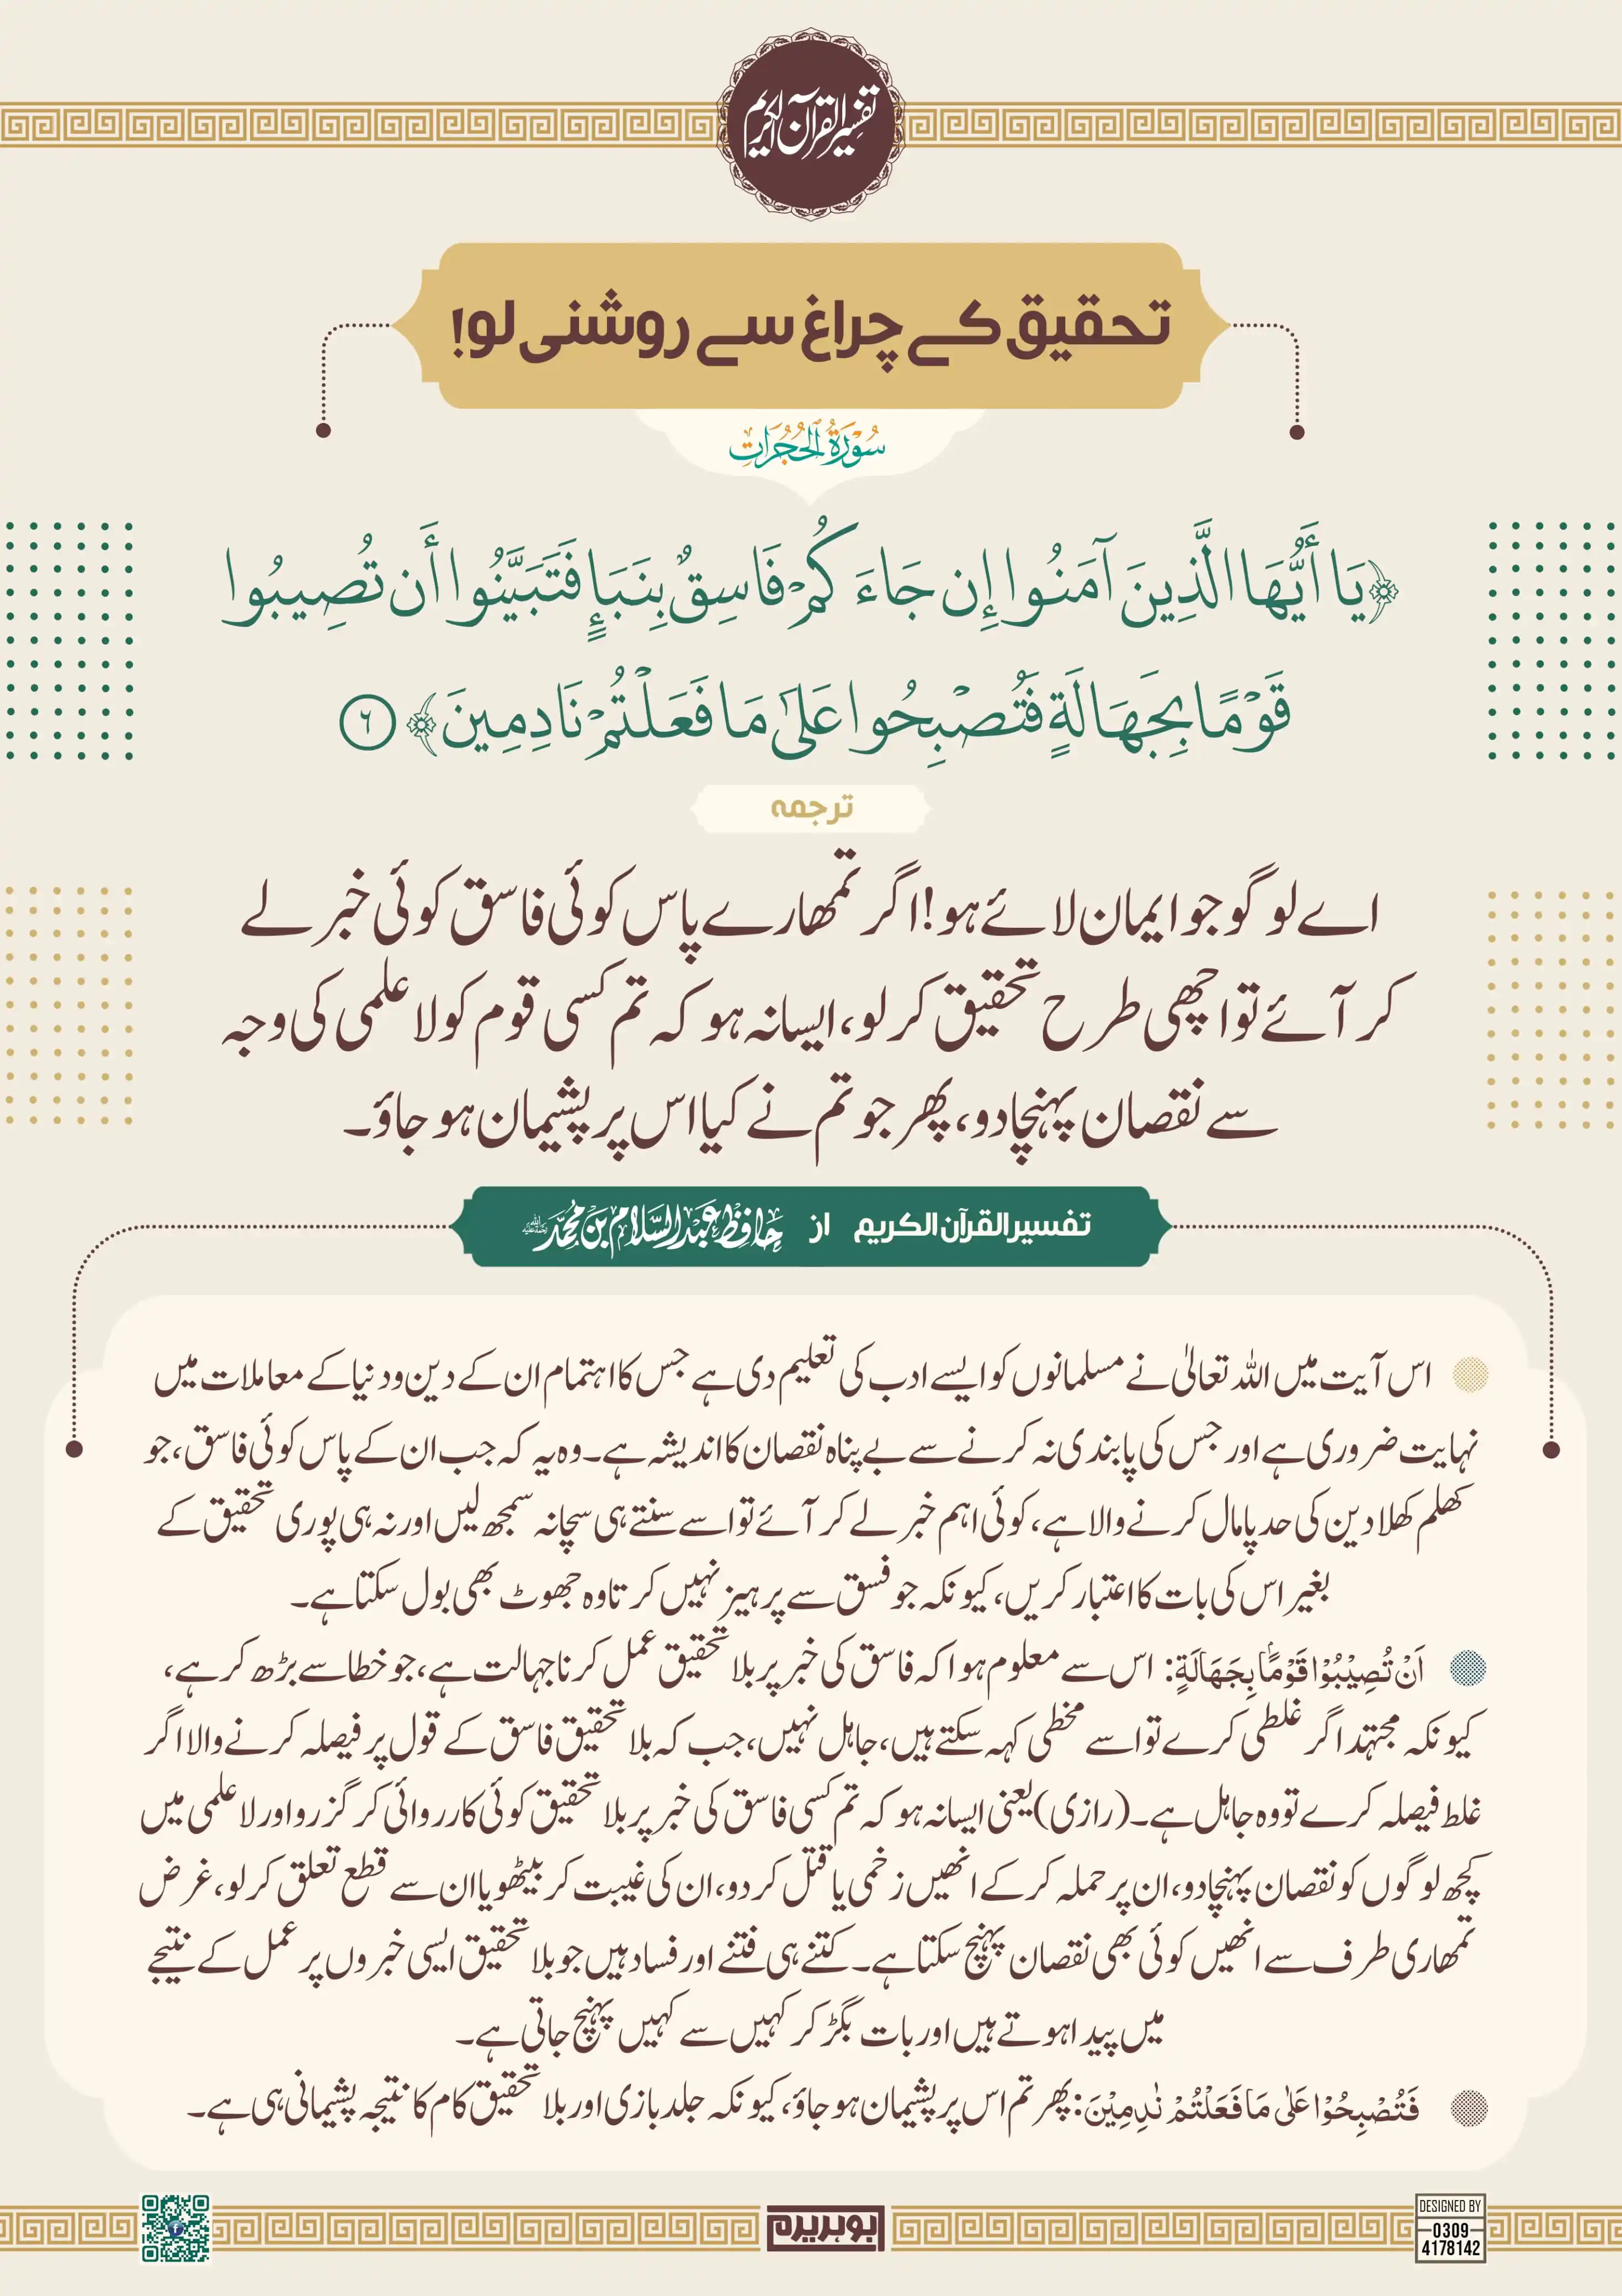 تفسیر القرآن الکریم
تحقیق کے چراغ سے روشنی لو!
سُوۡرَةُ الۡحُجُرَاتِ
﴿يَا أَيُّهَا الَّذِينَ آمَنُوا إِن جَاءَكُمْ فَاسِقٌ بِنَبَإٍ فَتَبَيَّنُوا أَن تُصِيبُوا
قَوْمًا بِجَهَالَةٍ فَتُصْبِحُوا عَلَىٰ مَا فَعَلْتُمْ نَادِمِينَ﴾ ٦
ترجمه
اے لوگو جو ایمان لائے ہو! اگر تمھارے پاس کوئی فاسق کوئی خبر لے
کر آئے تو اچھی طرح تحقیق کر لو، ایسا نہ ہو کہ تم کسی قوم کو لاعلمی کی وجہ
سے نقصان پہنچا دو، پھر جو تم نے کیا اس پر پشیمان ہو جاؤ۔
تفسیر القرآن الکریم از حافظ عبد السلام بن محمد رحمہ اللہ
اس آیت میں اللہ تعالیٰ نے مسلمانوں کو ایسے ادب کی تعلیم دی ہے جس کا اہتمام ان کے دین و دنیا کے معاملات میں
نہایت ضروری ہے اور جس کی پابندی نہ کرنے سے بے پناہ نقصان کا اندیشہ ہے۔ وہ یہ کہ جب ان کے پاس کوئی فاسق، جو
کھلم کھلا دین کی حد پامال کرنے والا ہے، کوئی اہم خبر لے کر آئے تو اسے سنتے ہی سچا نہ سمجھ لیں اور نہ ہی پوری تحقیق کے
بغیر اس کی بات کا اعتبار کریں، کیونکہ جو فسق سے پرہیز نہیں کرتا وہ جھوٹ بھی بول سکتا ہے۔
اَنْ تُصِيْبُوْا قَوْمًۢا بِجَهَالَةٍ: اس سے معلوم ہوا کہ فاسق کی خبر پر بلا تحقیق عمل کرنا جہالت ہے، جو خطا سے بڑھ کر ہے،
کیونکہ مجتہد اگر غلطی کرے تو اسے مخطی کہہ سکتے ہیں، جاہل نہیں، جب کہ بلا تحقیق فاسق کے قول پر فیصلہ کرنے والا اگر
غلط فیصلہ کرے تو وہ جاہل ہے۔ (رازی) یعنی ایسا نہ ہو کہ تم کسی فاسق کی خبر پر بلا تحقیق کوئی کارروائی کر گزرو اور لاعلمی میں
کچھ لوگوں کو نقصان پہنچا دو، ان پر حملہ کر کے انھیں زخمی یا قتل کر دو، ان کی غیبت کر بیٹھو یا ان سے قطع تعلق کر لو، غرض
تمھاری طرف سے انھیں کوئی بھی نقصان پہنچ سکتا ہے۔ کتنے ہی فتنے اور فساد ہیں جو بلا تحقیق ایسی خبروں پر عمل کے نتیجے
میں پیدا ہوتے ہیں اور بات بگڑ کر کہیں سے کہیں پہنچ جاتی ہے۔
فَتُصْبِحُوْا عَلٰى مَا فَعَلْتُمْ نٰدِمِيْنَ: پھر تم اس پر پشیمان ہو جاؤ، کیونکہ جلد بازی اور بلا تحقیق کام کا نتیجہ پشیمانی ہی ہے۔
DESIGNED BY
0309
4178142